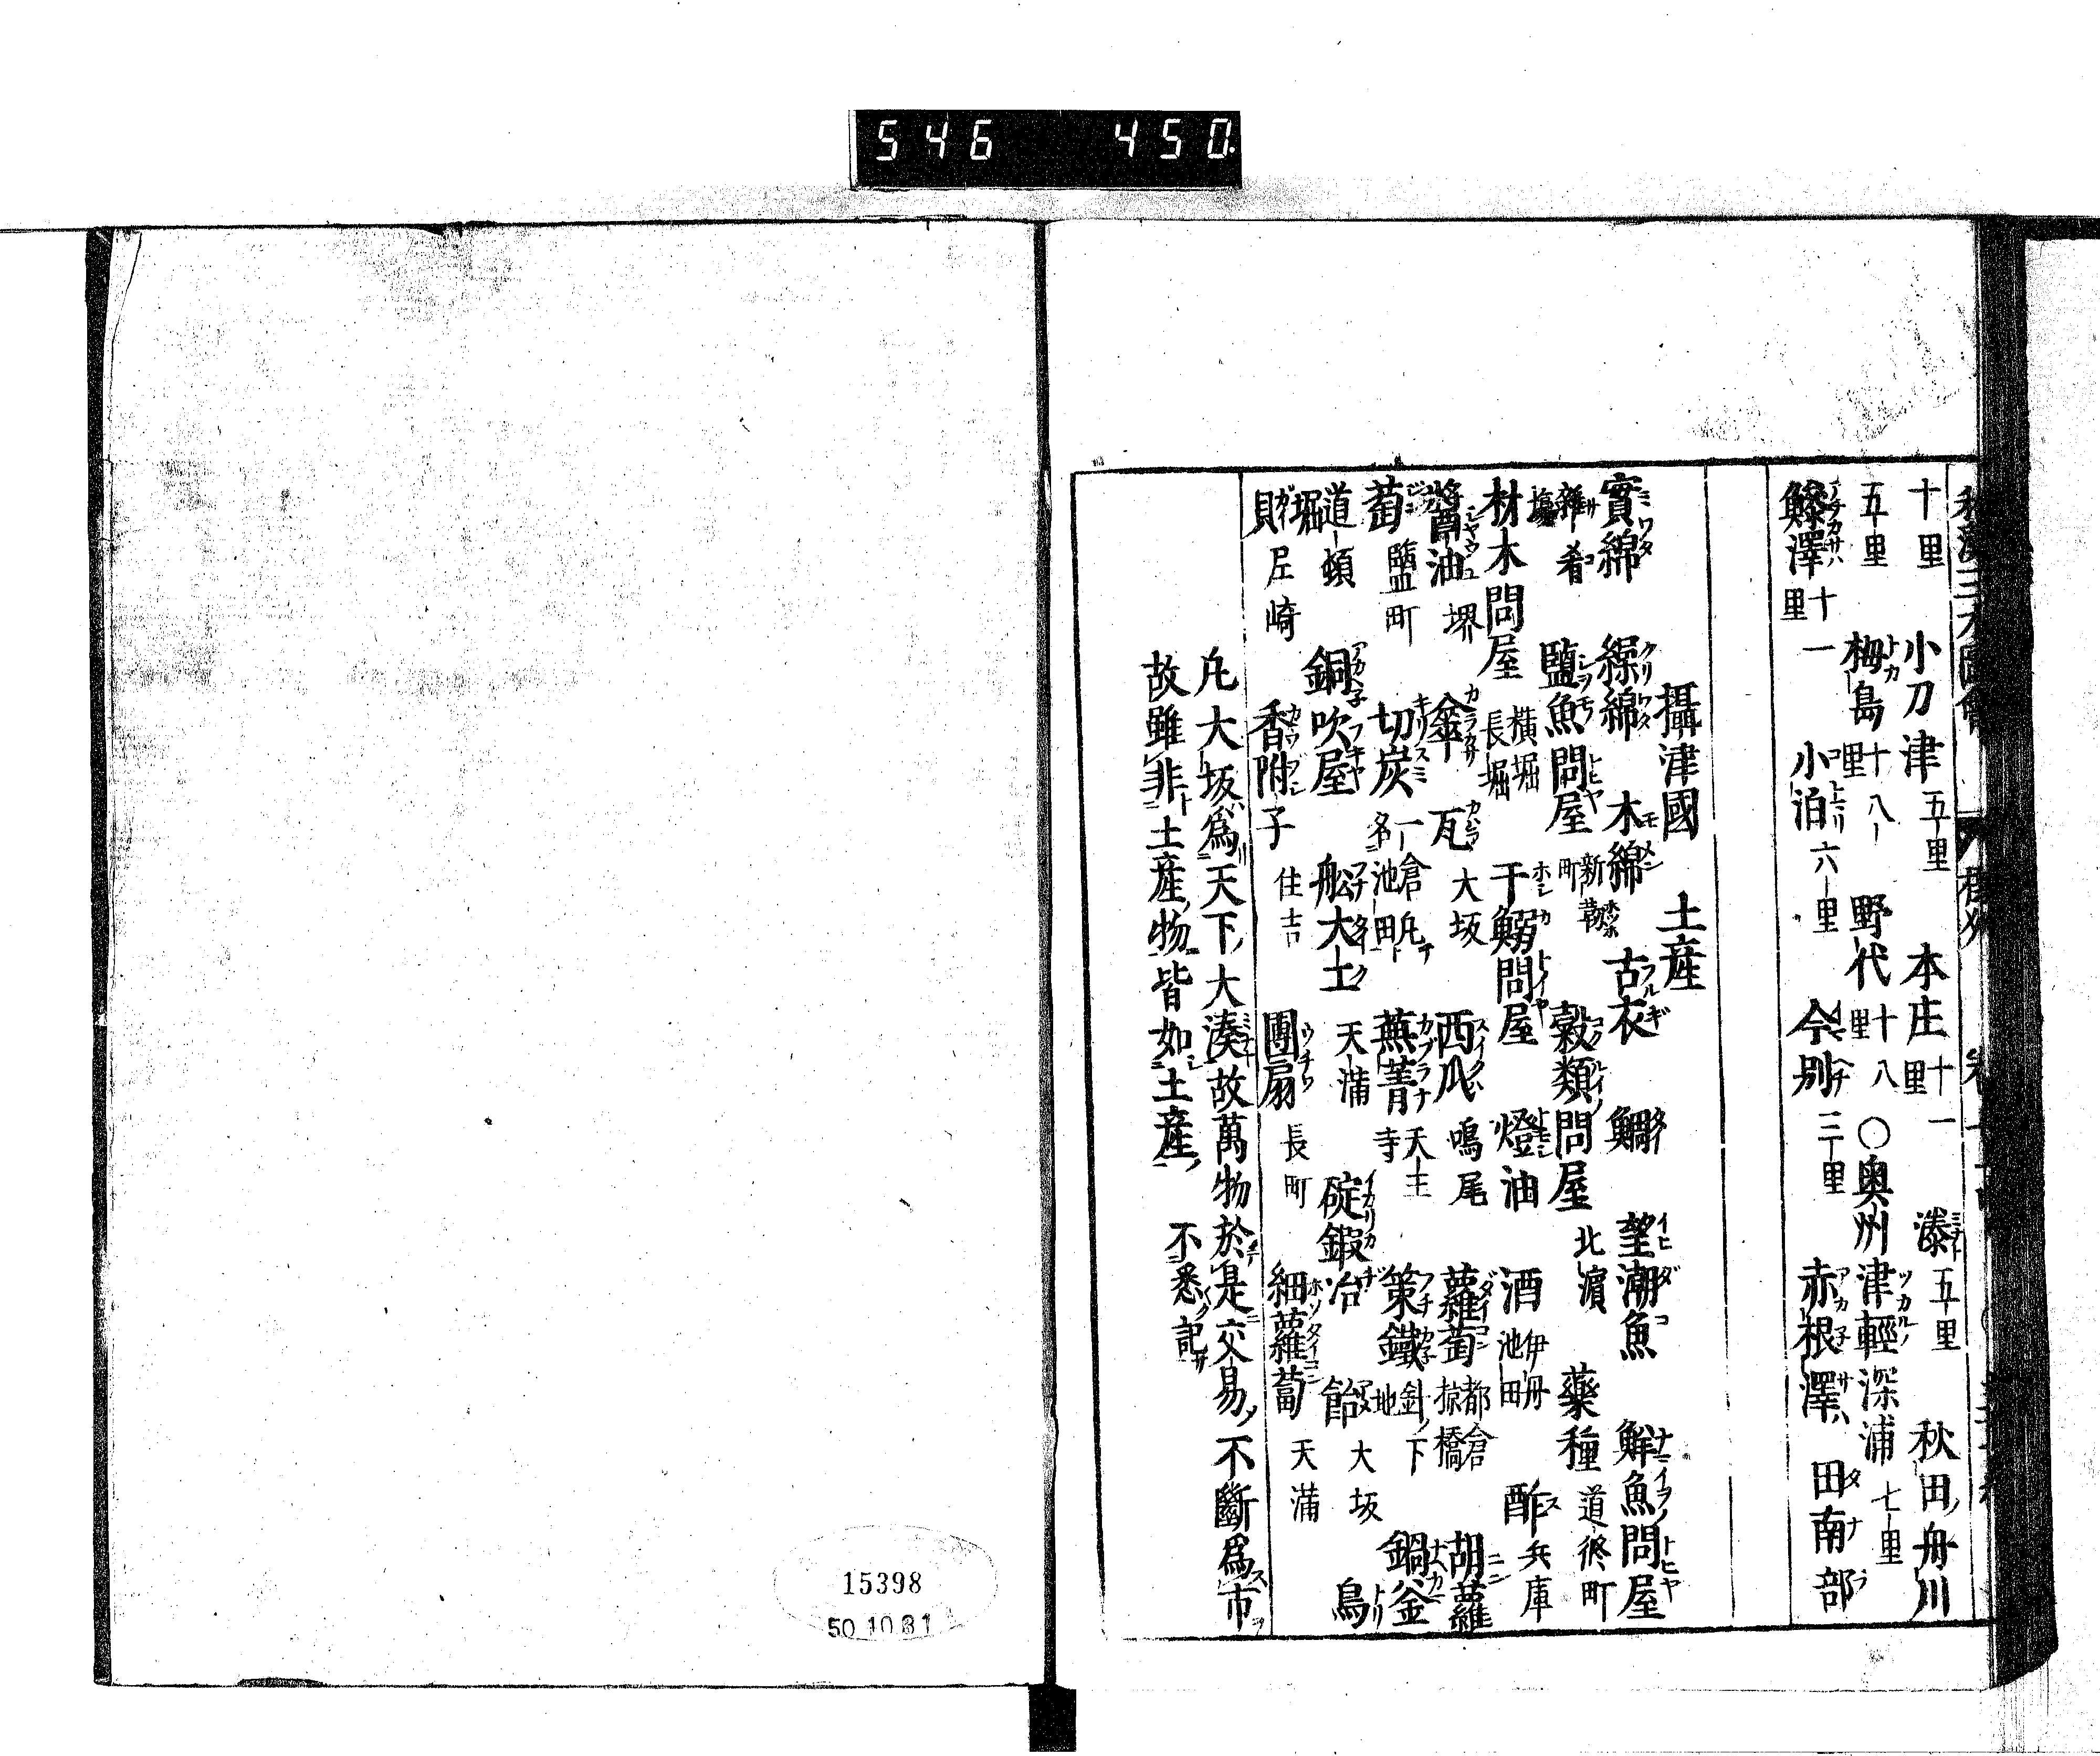 546 450
十里 小刀津五里 本庄十一里 湊五里 秋田ノ舟川
五里 梅島十八里 野代十八里 〇奥州津輕深浦七里
鰺澤十一里 小泊六里 今別三里 赤根澤 田南部
攝津國 土産
實綿 繰綿 木綿 古衣 鯛 望潮魚 鮮魚問屋
雜肴 鹽魚問屋 新町 穀類問屋 北濱 藥種 道修町
材木問屋 横堀 長堀 干鰯問屋 燈油 酒 伊丹 池田 酢 兵庫
醬油 堺 傘 瓦 大坂 西瓜 鳴尾 蘿蔔 胡蘿
蔔 鹽町 切炭 池田 蕪菁 天王寺 策鐵 鍋釜
道頓堀 銅吹屋 舩大工 天滿 碇鍛冶 飴 大坂 鳥
貝 尼崎 香附子 住吉 團扇 長町 細蘿蔔 天滿
凢大坂爲天下ノ大湊故萬物於是交易ノ不斷爲市
故雖非土産物皆如土産 不悉記
15398
50.10.31